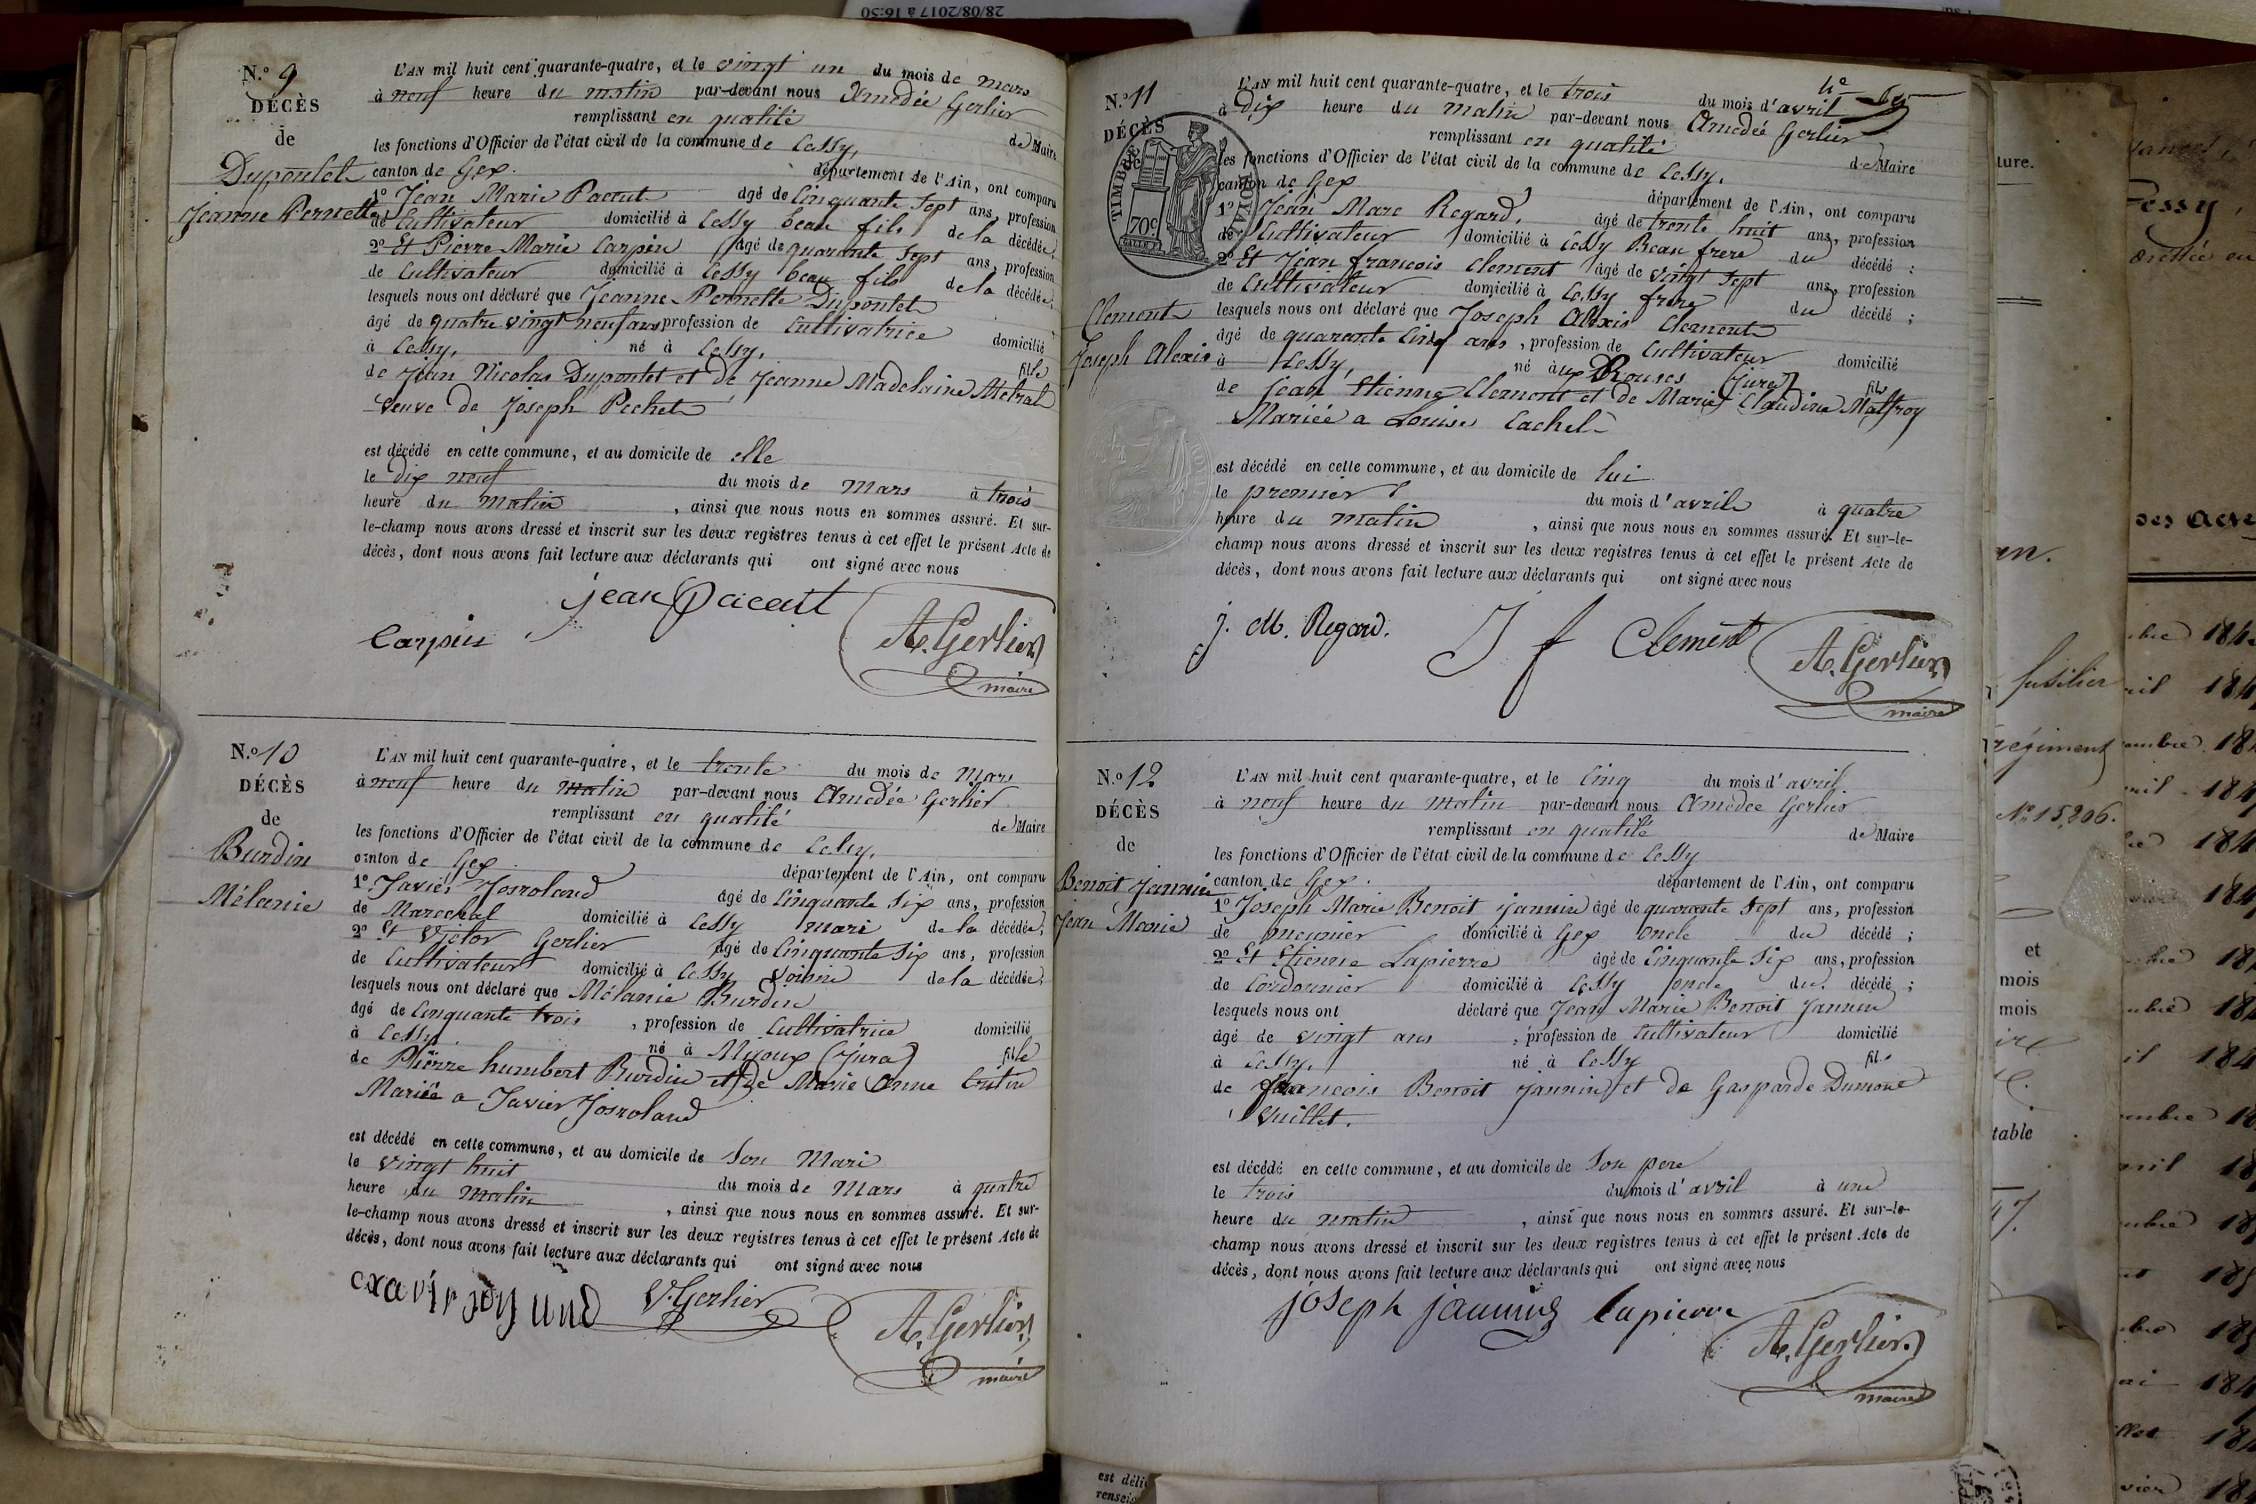 28/08/2017 à 16:50
N.º 9
DÉCÈS
de
Dupontet
Jeanne Pernette
L'AN mil huit cent quarante-quatre, et le vingt un du mois de mars
à neuf heure du matin par-devant nous Amedée Gerlier
remplissant en qualité de Maire
les fonctions d'Officier de l'état civil de la commune de Cessy,
canton de Gex. département de l'Ain, ont comparu
1º Jean Marie Pacout agé de Cinquante Sept ans, profession
de Cultivateur domicilié à Cessy beau fils de la décédée;
2º Et Pierre Marie Carpin agé de quarante Sept ans, profession
de Cultivateur domicilié à Cessy beau fils de la décédée;
lesquels nous ont déclaré que Jeanne Pernette Dupontet
âgé de quatre vingt neuf ans profession de Cultivatrice domicilié
à Cessy, né à Cessy, fille
de Jean Nicolas Dupontet et de Jeanne Madelaine Metral
Veuve de Joseph Pechet
est décédé en cette commune, et au domicile de elle
le dix neuf du mois de Mars à trois
heure du Matin, ainsi que nous nous en sommes assuré. Et sur-
le-champ nous avons dressé et inscrit sur les deux registres tenus à cet effet le présent Acte de
décès, dont nous avons fait lecture aux déclarants qui ont signé avec nous
jean Pacout
Carpin A. Gerlier
maire
N.º 10
DÉCÈS
de
Burdin
Mélanie
L'AN mil huit cent quarante-quatre, et le trente du mois de Mars
à neuf heure du matin par-devant nous Amedée Gerlier
remplissant en qualité de Maire
les fonctions d'Officier de l'état civil de la commune de Cessy,
canton de Gex département de l'Ain, ont comparu
1º Xavier Josroland âgé de Cinquante Six ans, profession
de Marechal domicilié à Cessy mari de la décédée;
2º Et Victor Gerlier âgé de Cinquante Six ans, profession
de Cultivateur domicilié à Cessy Voisin de la décédée;
lesquels nous ont déclaré que Mélanie Burdin
âgé de Cinquante trois, profession de Cultivatrice domicilié
à Cessy. né à Mijoux (Jura) fille
de Pierre humbert Burdin et de Marie Anne Cretin
Mariée a Xavier Josroland
est décédé en cette commune, et au domicile de Son Mari
le vingt huit du mois de Mars à quatre
heure du Matin, ainsi que nous nous en sommes assuré. Et sur-
le-champ nous avons dressé et inscrit sur les deux registres tenus à cet effet le présent Acte de
décès, dont nous avons fait lecture aux déclarants qui ont signé avec nous
V. Gerlier A. Gerlier
maire
N.º 11
DÉCÈS
TIMBRE
70c
Clement
Joseph Alexis
L'AN mil huit cent quarante-quatre, et le trois du mois d'avril
à dix heure du matin par-devant nous Amedée Gerlier
remplissant en qualité de Maire
les fonctions d'Officier de l'état civil de la commune de Cessy.
canton de Gex département de l'Ain, ont comparu
1º Jean Marc Regard, âgé de trente huit ans, profession
de Cultivateur domicilié à Cessy Beau frere du décédé;
2º Et Jean francois Clement âgé de vingt Sept ans, profession
de Cultivateur domicilié à Cessy frere du décédé;
lesquels nous ont déclaré que Joseph Alexis Clement
âgé de quarante Cinq ans, profession de Cultivateur domicilié
à Cessy, né aux Rouses (Jura) fils
de Jean Etienne Clement et de Marie Claudine Matfroy
Mariée a Louise Cachet
est décédé en cette commune, et au domicile de lui
le premier du mois d'avril à quatre
heure du matin, ainsi que nous nous en sommes assuré. Et sur-le-
champ nous avons dressé et inscrit sur les deux registres tenus à cet effet le présent Acte de
décès, dont nous avons fait lecture aux déclarants qui ont signé avec nous
j. M. Regard. J f Clement A. Gerlier
maire
N.º 12
DÉCÈS
de
Benoit Jannin
Jean Marie
L'AN mil huit cent quarante-quatre, et le Cinq du mois d'avril
à neuf heure du matin par-devant nous Amedée Gerlier
remplissant en qualité de Maire
les fonctions d'Officier de l'état civil de la commune de Cessy
canton de Gex. département de l'Ain, ont comparu
1º Joseph Marie Benoit jannin âgé de quarante Sept ans, profession
de meunier domicilié à Gex oncle du décédé;
2º Et Etienne Lapierre âgé de Cinquante Six ans, profession
de Cordonnier domicilié à Cessy oncle du décédé;
lesquels nous ont déclaré que Jean Marie Benoit Jannin
âgé de vingt ans, profession de Cultivateur domicilié
à Cessy. né à Cessy fils
de francois Benoit jannin et de Gasparde Dumont
Vuillet.
est décédé en cette commune, et au domicile de Son pere
le trois du mois d'avril à une
heure du matin, ainsi que nous nous en sommes assuré. Et sur-le-
champ nous avons dressé et inscrit sur les deux registres tenus à cet effet le présent Acte de
décès, dont nous avons fait lecture aux déclarants qui ont signé avec nous
joseph jannin lapierre A. Gerlier
maire
fusilier
régiment
Nº 15,206.
et
mois
mois
table